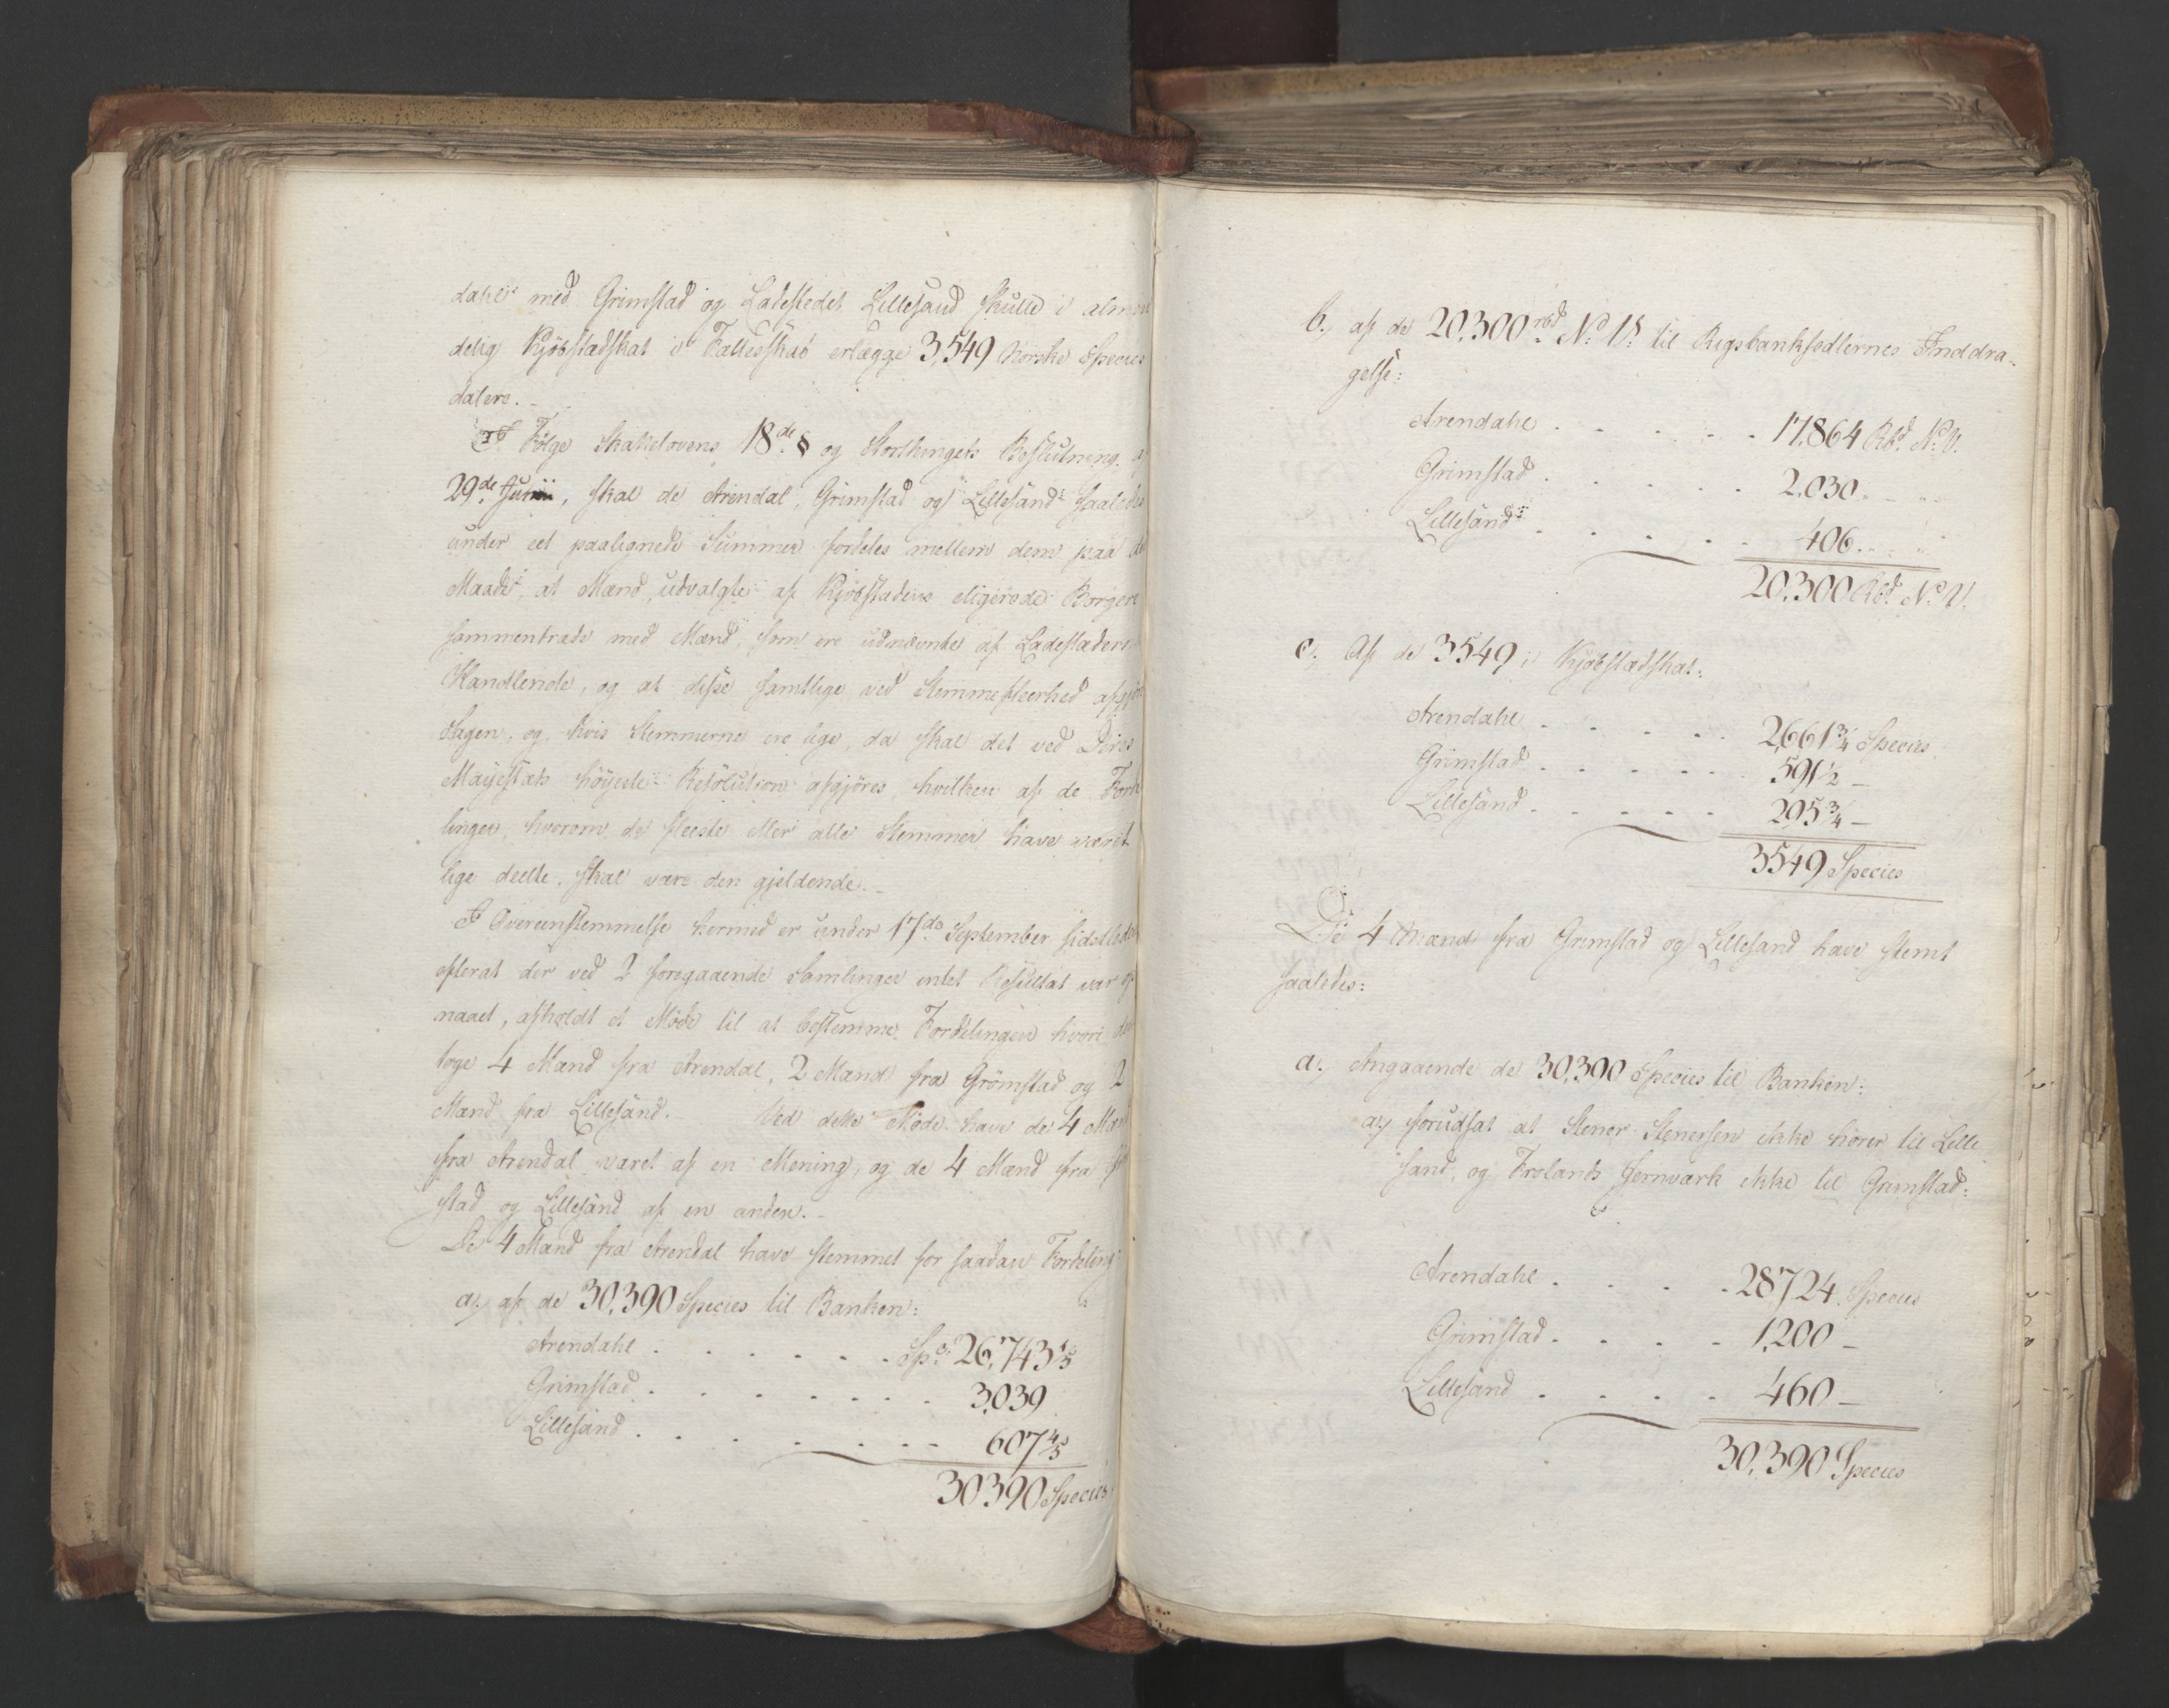 dahl med Grimstad og Ladestedet Lillesand skulle i almin
delig Kjøbstadskat i Fællesskab erlægge 3,549 Norske Species
dalere.
I Følge Skattelovens 18de § og Storthingets Beslutning af
29de Junii, skal de Arendal, Grimstad og Lillesand saaledes
under eet paalignede Summer fordeles mellem dem paa de
Maade, at Mænd, udvalgte af Kjøbstadens eligerede Borgere
sammentræde med Mænd, som ere udnævnte af Ladestædern
Handlende, og at disse samtlige ved Stemmefleerhed afgjør
Sagen, og, hvis Stemmerne ere lige, da skal det ved Deres
Mayestæts høyeste Resolution afgjøres, hvilken af de Forde
linger, hvorom de fleeste eller alle Stemmer have været
lige deelte, skal være den gjeldende.
I Overeensstemmelse hermed er under 17de September sidstleden
efterat der ved 2 foregaaende Samlinger intet Resultat var op
naaet, afholdt et Møde til at bestemme Fordelingen hvori del
toge 4 Mænd fra Arendal, 2 Mænd fra Grimstad og 2
Mænd fra Lillesand. Ved dette Møde have de 4 Mænd
fra Arendal været af en Mening, og de 4 Mænd fra Grim
stad og Lillesand af en anden.
De 4 Mænd fra Arendal have stemmet for saadan Fordeling:
a, af de 30,390 Species til Banken:
Arendahl . . . . . . . Sp. 26,743 1/5
Grimstad . . . . . . . 3,039
Lillesand . . . . . . . 607 4/5
30390 Species
b. af de 20,300 rbd N: V: til Rigsbanksedlernes Inddra-
gelse:
Arendahl . . . . . 17,864 Rbd. N. V.
Grimstad . . . . . 2,030 „ – „
Lillesand . . . . . 406 „ – „
20,300 Rbd. N. V.
c. Af de 3549 i Kjøbstadskat:
Arendahl . . . . . 2,661 3/4 Species
Grimstad . . . . . 591 1/2 –
Lillesand . . . . . 295 3/4 –
3549 Species
De 4 Mænd fra Grimstad og Lillesand have stemt
saaledes:
a, Angaaende de 30,390 Species til Banken:
a, forudsat at Stener Stenersen ikke hører til Lille
sand, og Frolands Jernværk ikke til Grimstad:
Arendahl . . . . 28,724 Species
Grimstad . . . . 1,200 –
Lillesand . . . . 460 –
30,390 Species